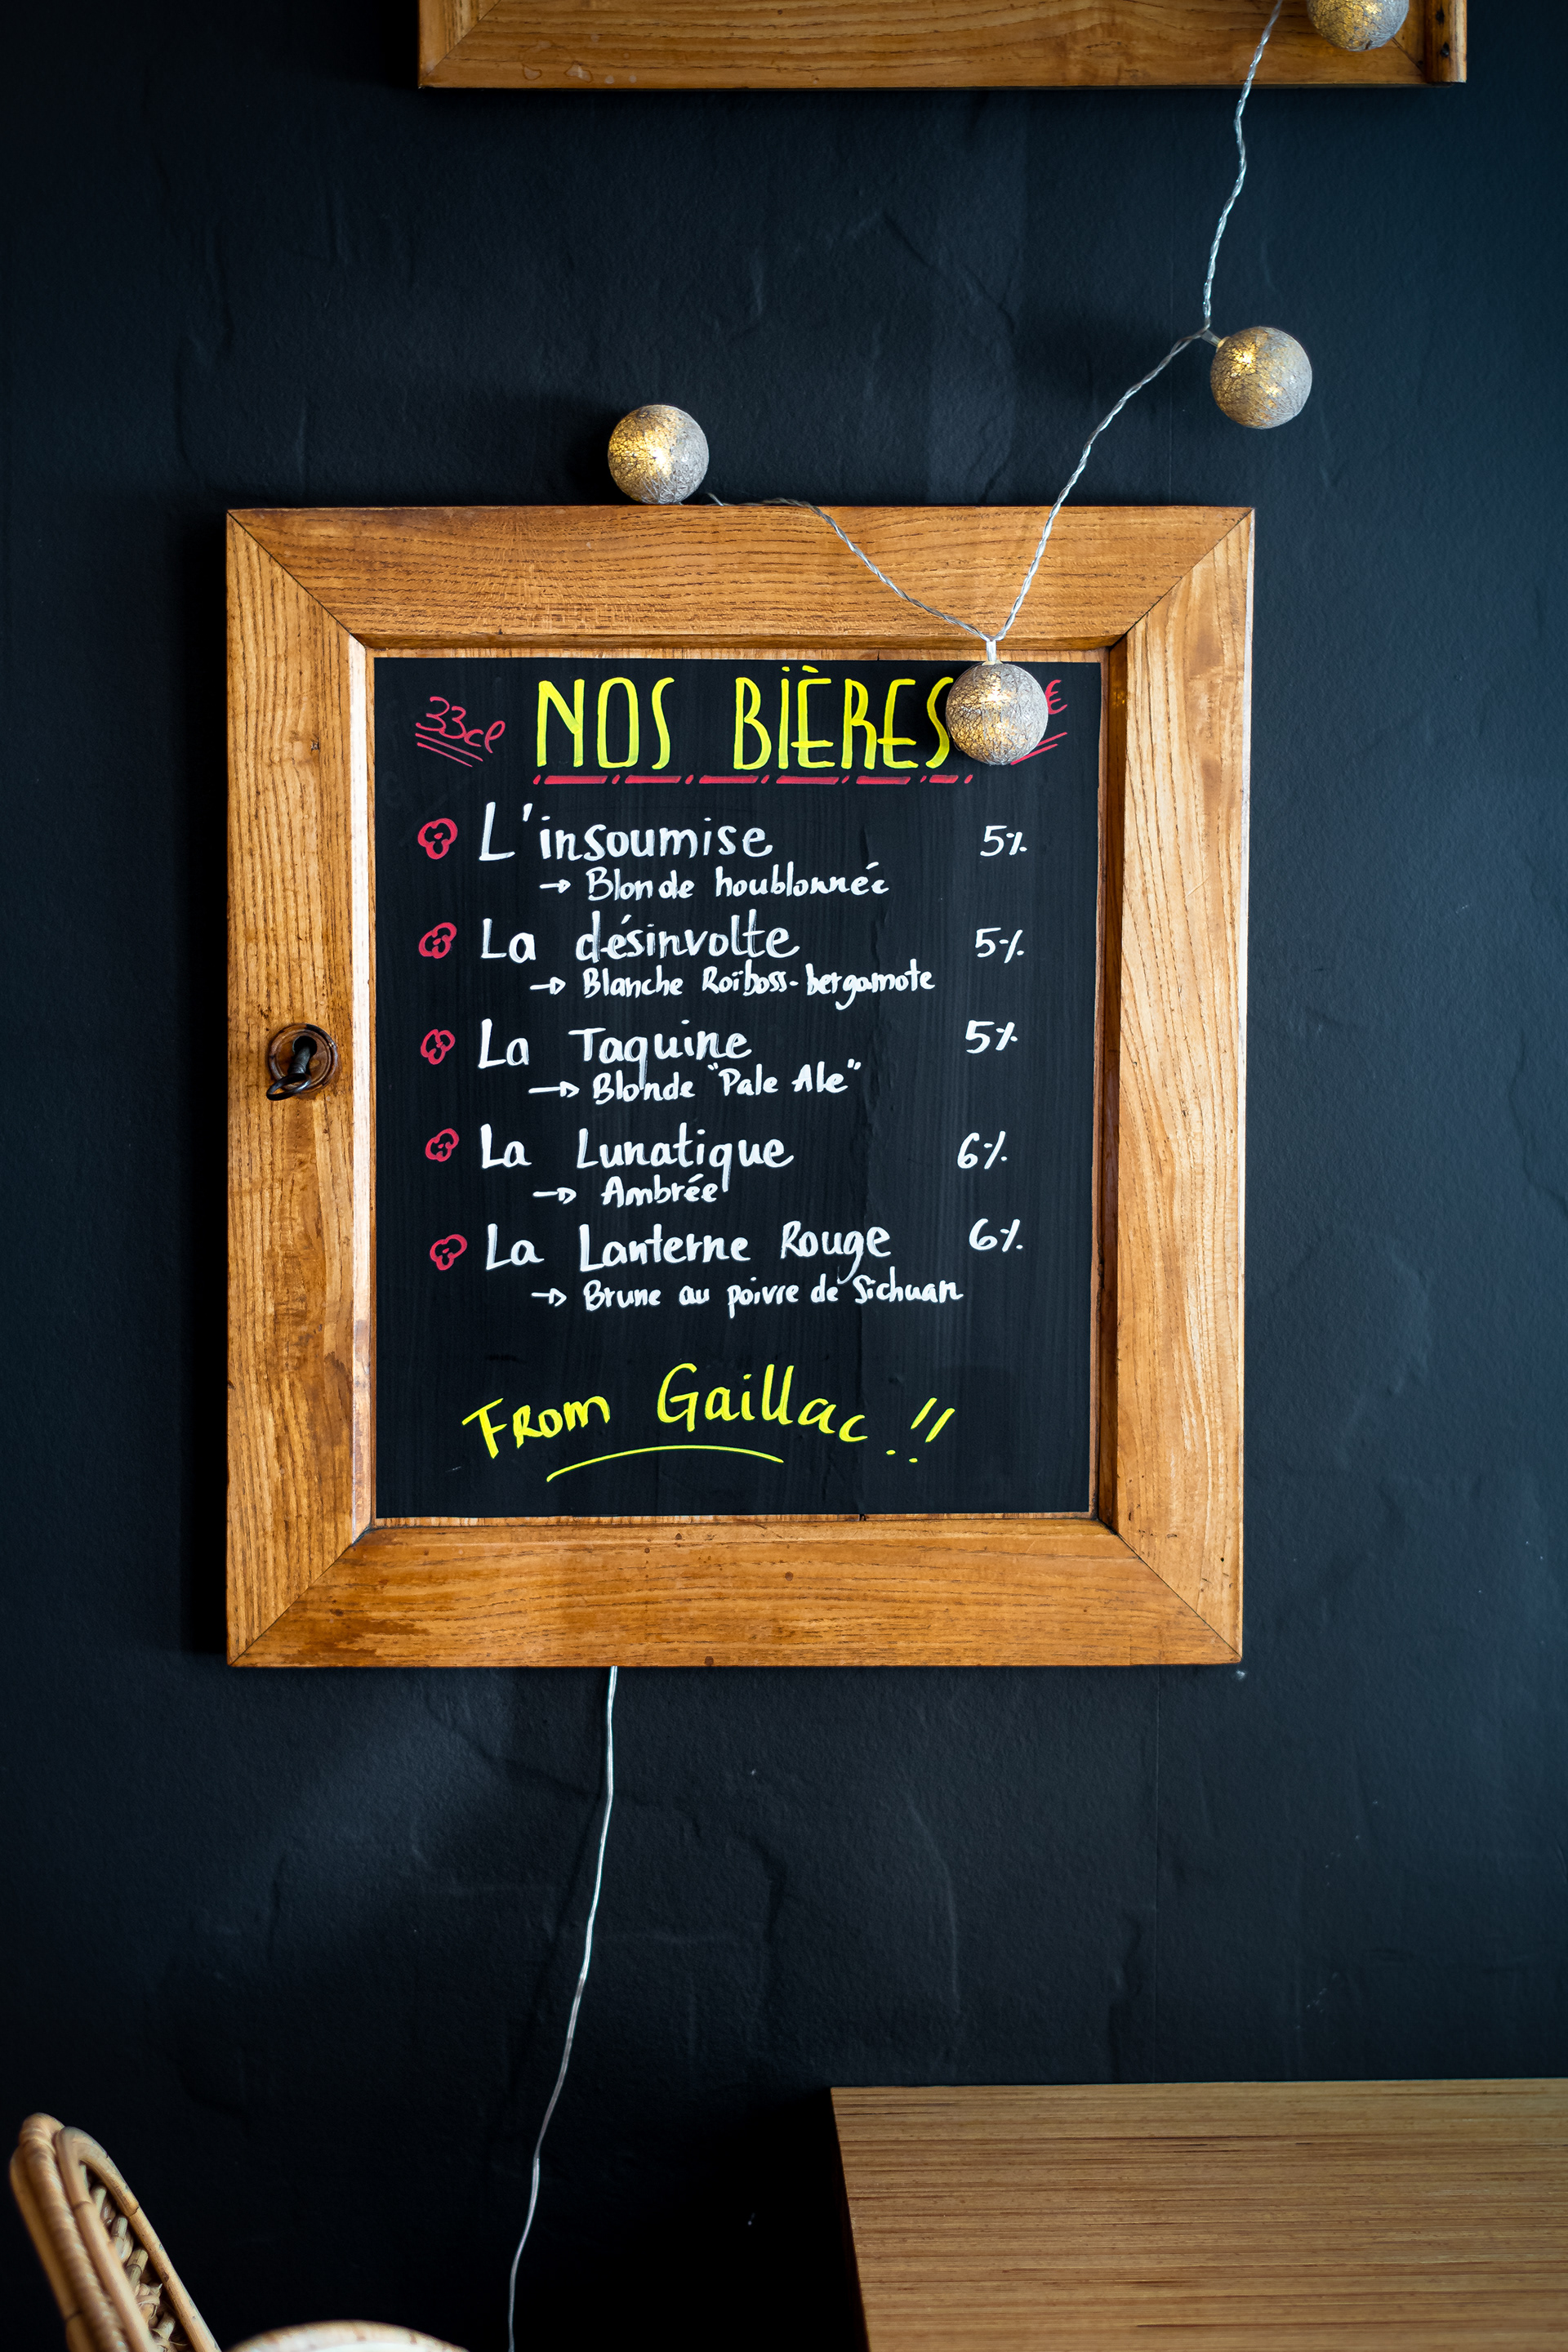 33cl NOS BIÈRES
L'insoumise 5%
→ Blonde houblonnée
La désinvolte 5%
→ Blanche Roïboss-bergamote
La Taquine 5%
→ Blonde "Pale Ale"
La Lunatique 6%
→ Ambrée
La Lanterne Rouge 6%
→ Brune au poivre de Sichuan
From Gaillac !!